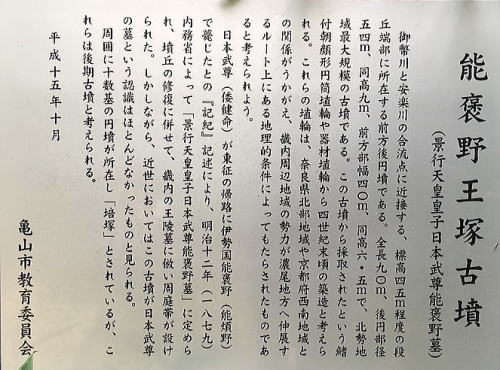 能褒野王塚古墳
(景行天皇皇子日本武尊能褒野墓)
御幣川と安楽川の合流点に近接する、標高四五m程度の段
丘端部に所在する前方後円墳である。全長九〇m、後円部径
五四m、同高九m、前方部幅四〇m、同高六・五mで、北勢地
域最大規模の古墳である。この古墳から採取されたという鰭
付朝顔形円筒埴輪や器材埴輪から四世紀末頃の築造と考えら
れる。これらの埴輪は、奈良県北部地域や京都府西南地域と
の関係がうかがえ、畿内周辺地域の勢力が濃尾地方へ伸展す
るルート上にある地理的条件によってもたらされたものであ
ると考えられよう。
日本武尊(倭健命)が東征の帰路に伊勢国能褒野(能煩野)
で薨じたとの『記紀』記述により、明治十二年(一八七九)
内務省によって「景行天皇皇子日本武尊能褒野墓」に定めら
れ、墳丘の修復に併せて、畿内の王陵墓に倣い周庭帯が設け
られた。しかしながら、近世においてはこの古墳が日本武尊
の墓という認識はほとんどなかったものと見られる。
周囲に十数基の円墳が所在し「培塚」とされているが、こ
れらは後期古墳と考えられる。
平成十五年十月
亀山市教育委員会